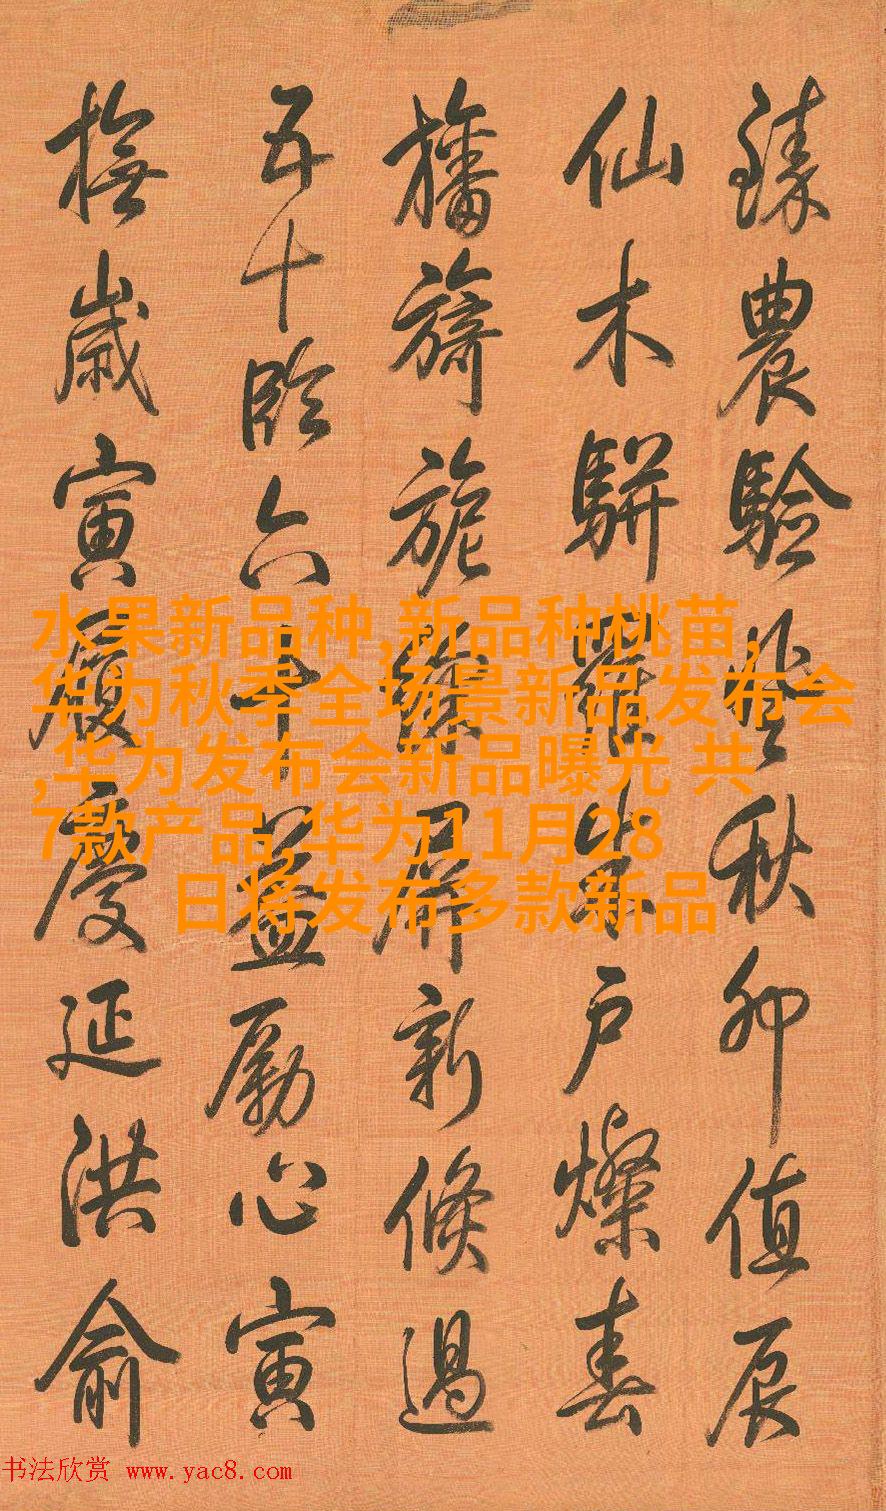 臻農驗登秋卯值辰
仙木駢羅朱戶燦春
旛旖旎綵屏新倏過
五十臨六十益勵心寅
撫歲寅履慶延洪俞
水果新品种,新品种桃苗,
华为秋季全场景新品发布会
,华为发布会新品曝光 共
7款产品,华为11月28
日将发布多款新品
书法欣赏 www.yac8.com